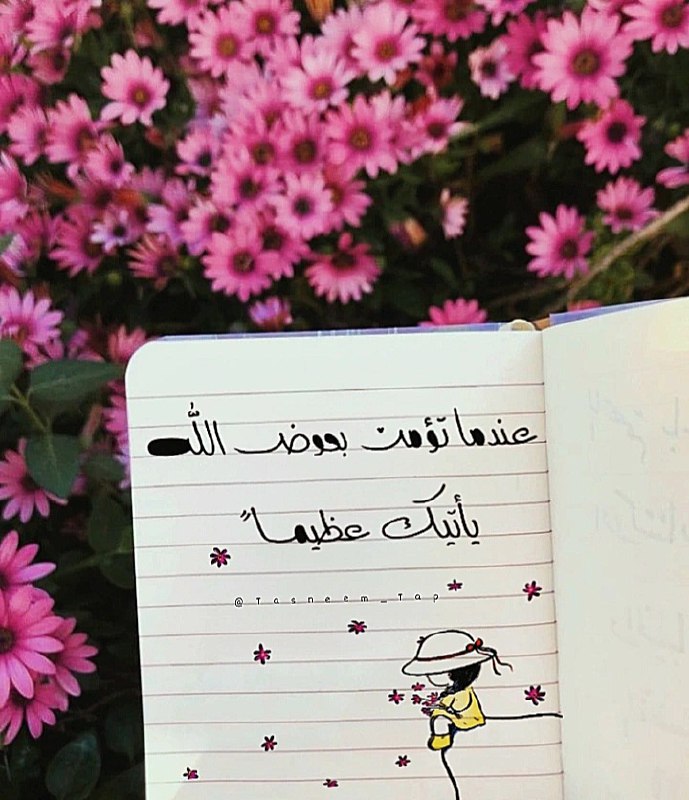 عندما تؤمن بعوض الله
يأتيك عظيماً
@Tasneem_Tap